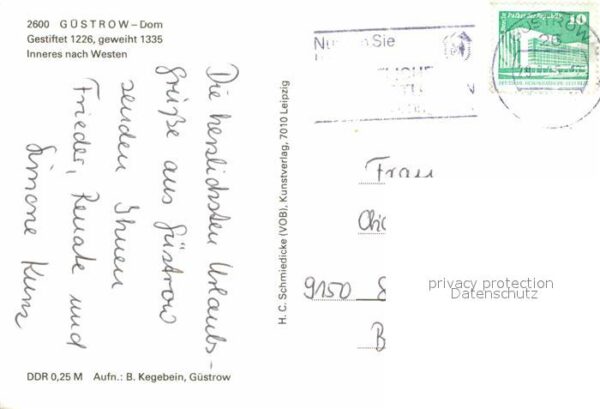 2600 GÜSTROW – Dom
Gestiftet 1226, geweiht 1335
Inneres nach Westen
Die herzlichsten Urlaubs-
grüße aus Güstrow
senden Ihnen
Frieder, Renate und
Simone Kunz
DDR 0,25 M Aufn.: B. Kegebein, Güstrow
H. C. Schmiedicke (VOB), Kunstverlag, 7010 Leipzig
Sie
10
Frau
9150
privacy protection
Datenschutz